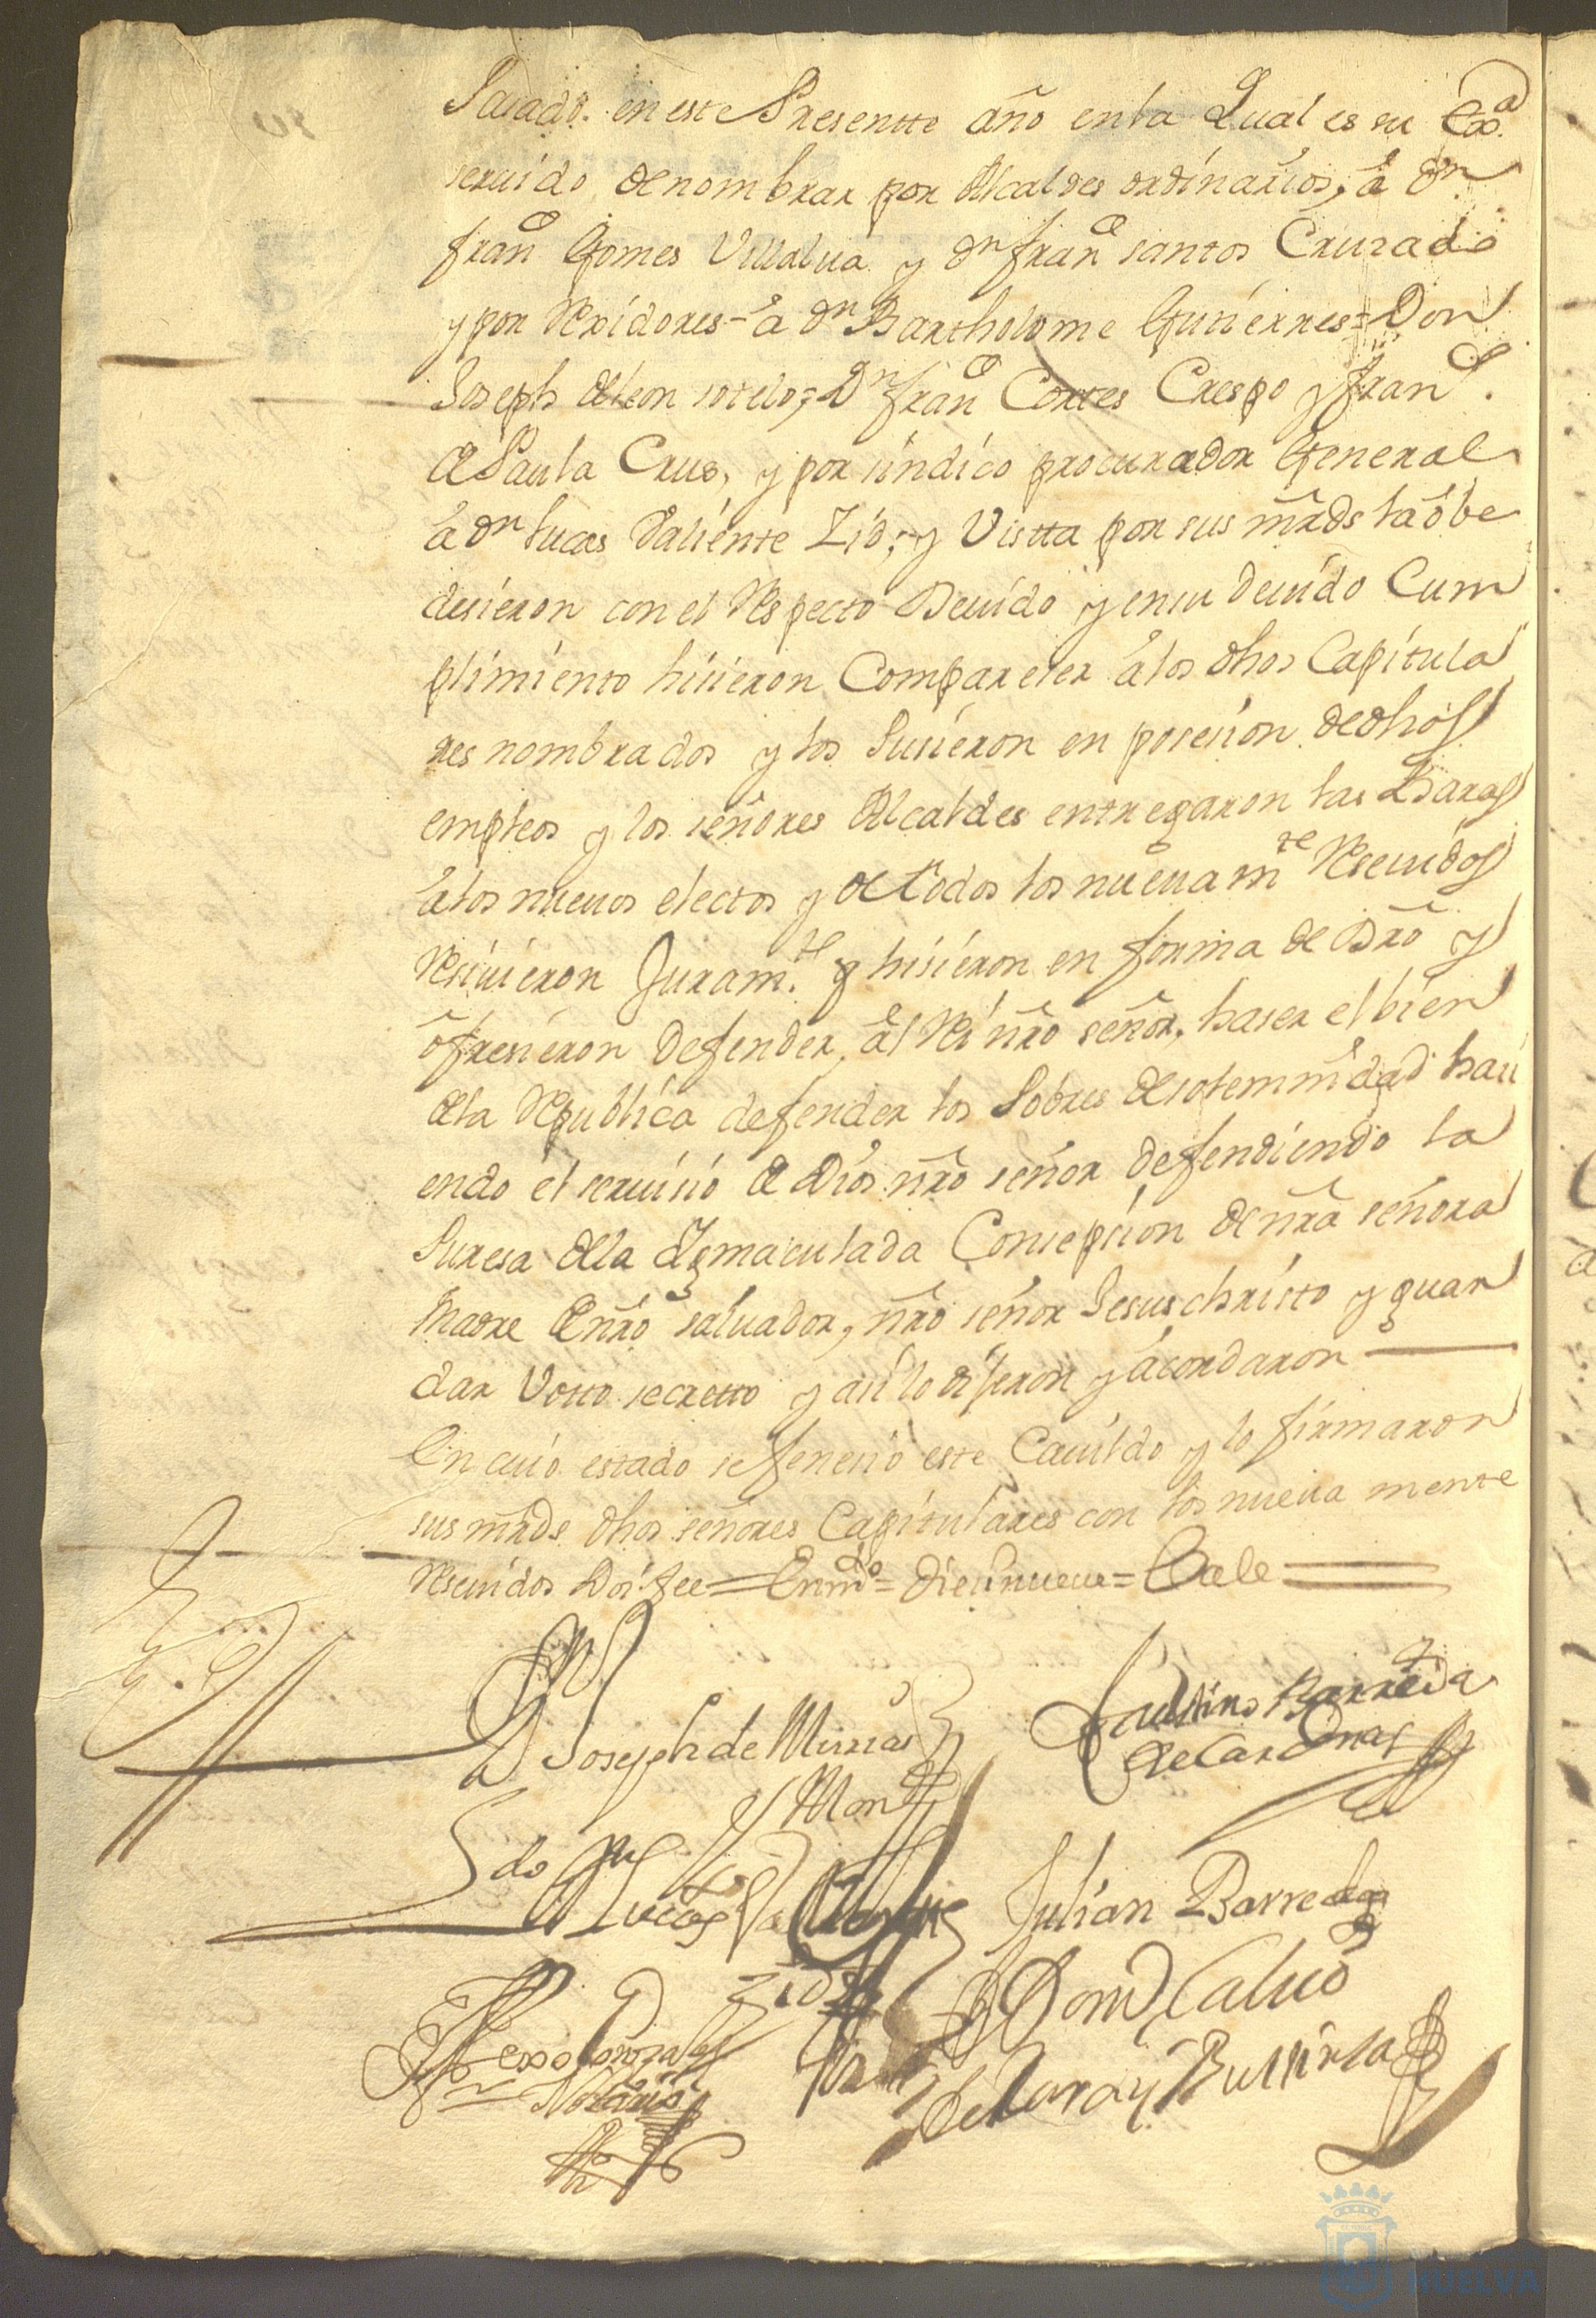 Pasado. en este Presentte año en la Qual es su Exª
seruido de nombrar por Alcaldes ordinarios, â Dn
franco Gomes Villalua y Dn franco santos Cruzado
y por Rexidores - â Dn Bartholome Gutierres = Don
Joseph de leon sotelo, = Dn franco Cortes Crespo y franco.
de Paula Crus, y por sindico procurador General
â Dn lucas Valiente Zid; y Vistta por sus mrds la ôbe
desieron con el Respecto Deuido y en su deuido Cum
plimiento hisieron Compareser â los dhos Capitula
res nombrados y los Pusieron en posesion de dhos
empleos y los señores Alcaldes entregaron las Baras
â los nueuos electos y de todos los nueuamte Reseuidos
Resiuieron Juramto. q hisieron en forma de Dro y
ôfresieron Defender, âl Rei nro señor, haser el bien
de la Republica defender los Pobres de solemnidad hasi
endo el seruisio de Dios nro señor defendiendo la
Puresa de la Ynmaculada Consepsion de nra señora
Madre de nro saluador, nro señor Jesuchristo y guar
dar Votto secretto y asi lo dijeron y acordaron
En cuio estado se fenesio este Cauildo y lo firmaron
sus mrds dhos señores Capitulares con los nueua mente
Reseuidos Doi fee = Enmdo = diesinueue = Vale
Dn Joseph de
y Mon
Faustino Barreda
de Cardenas
Ldo Dn Lucas Valiente
Zid
Julian Barreda
Dom Caluo
Notario
HUELVA